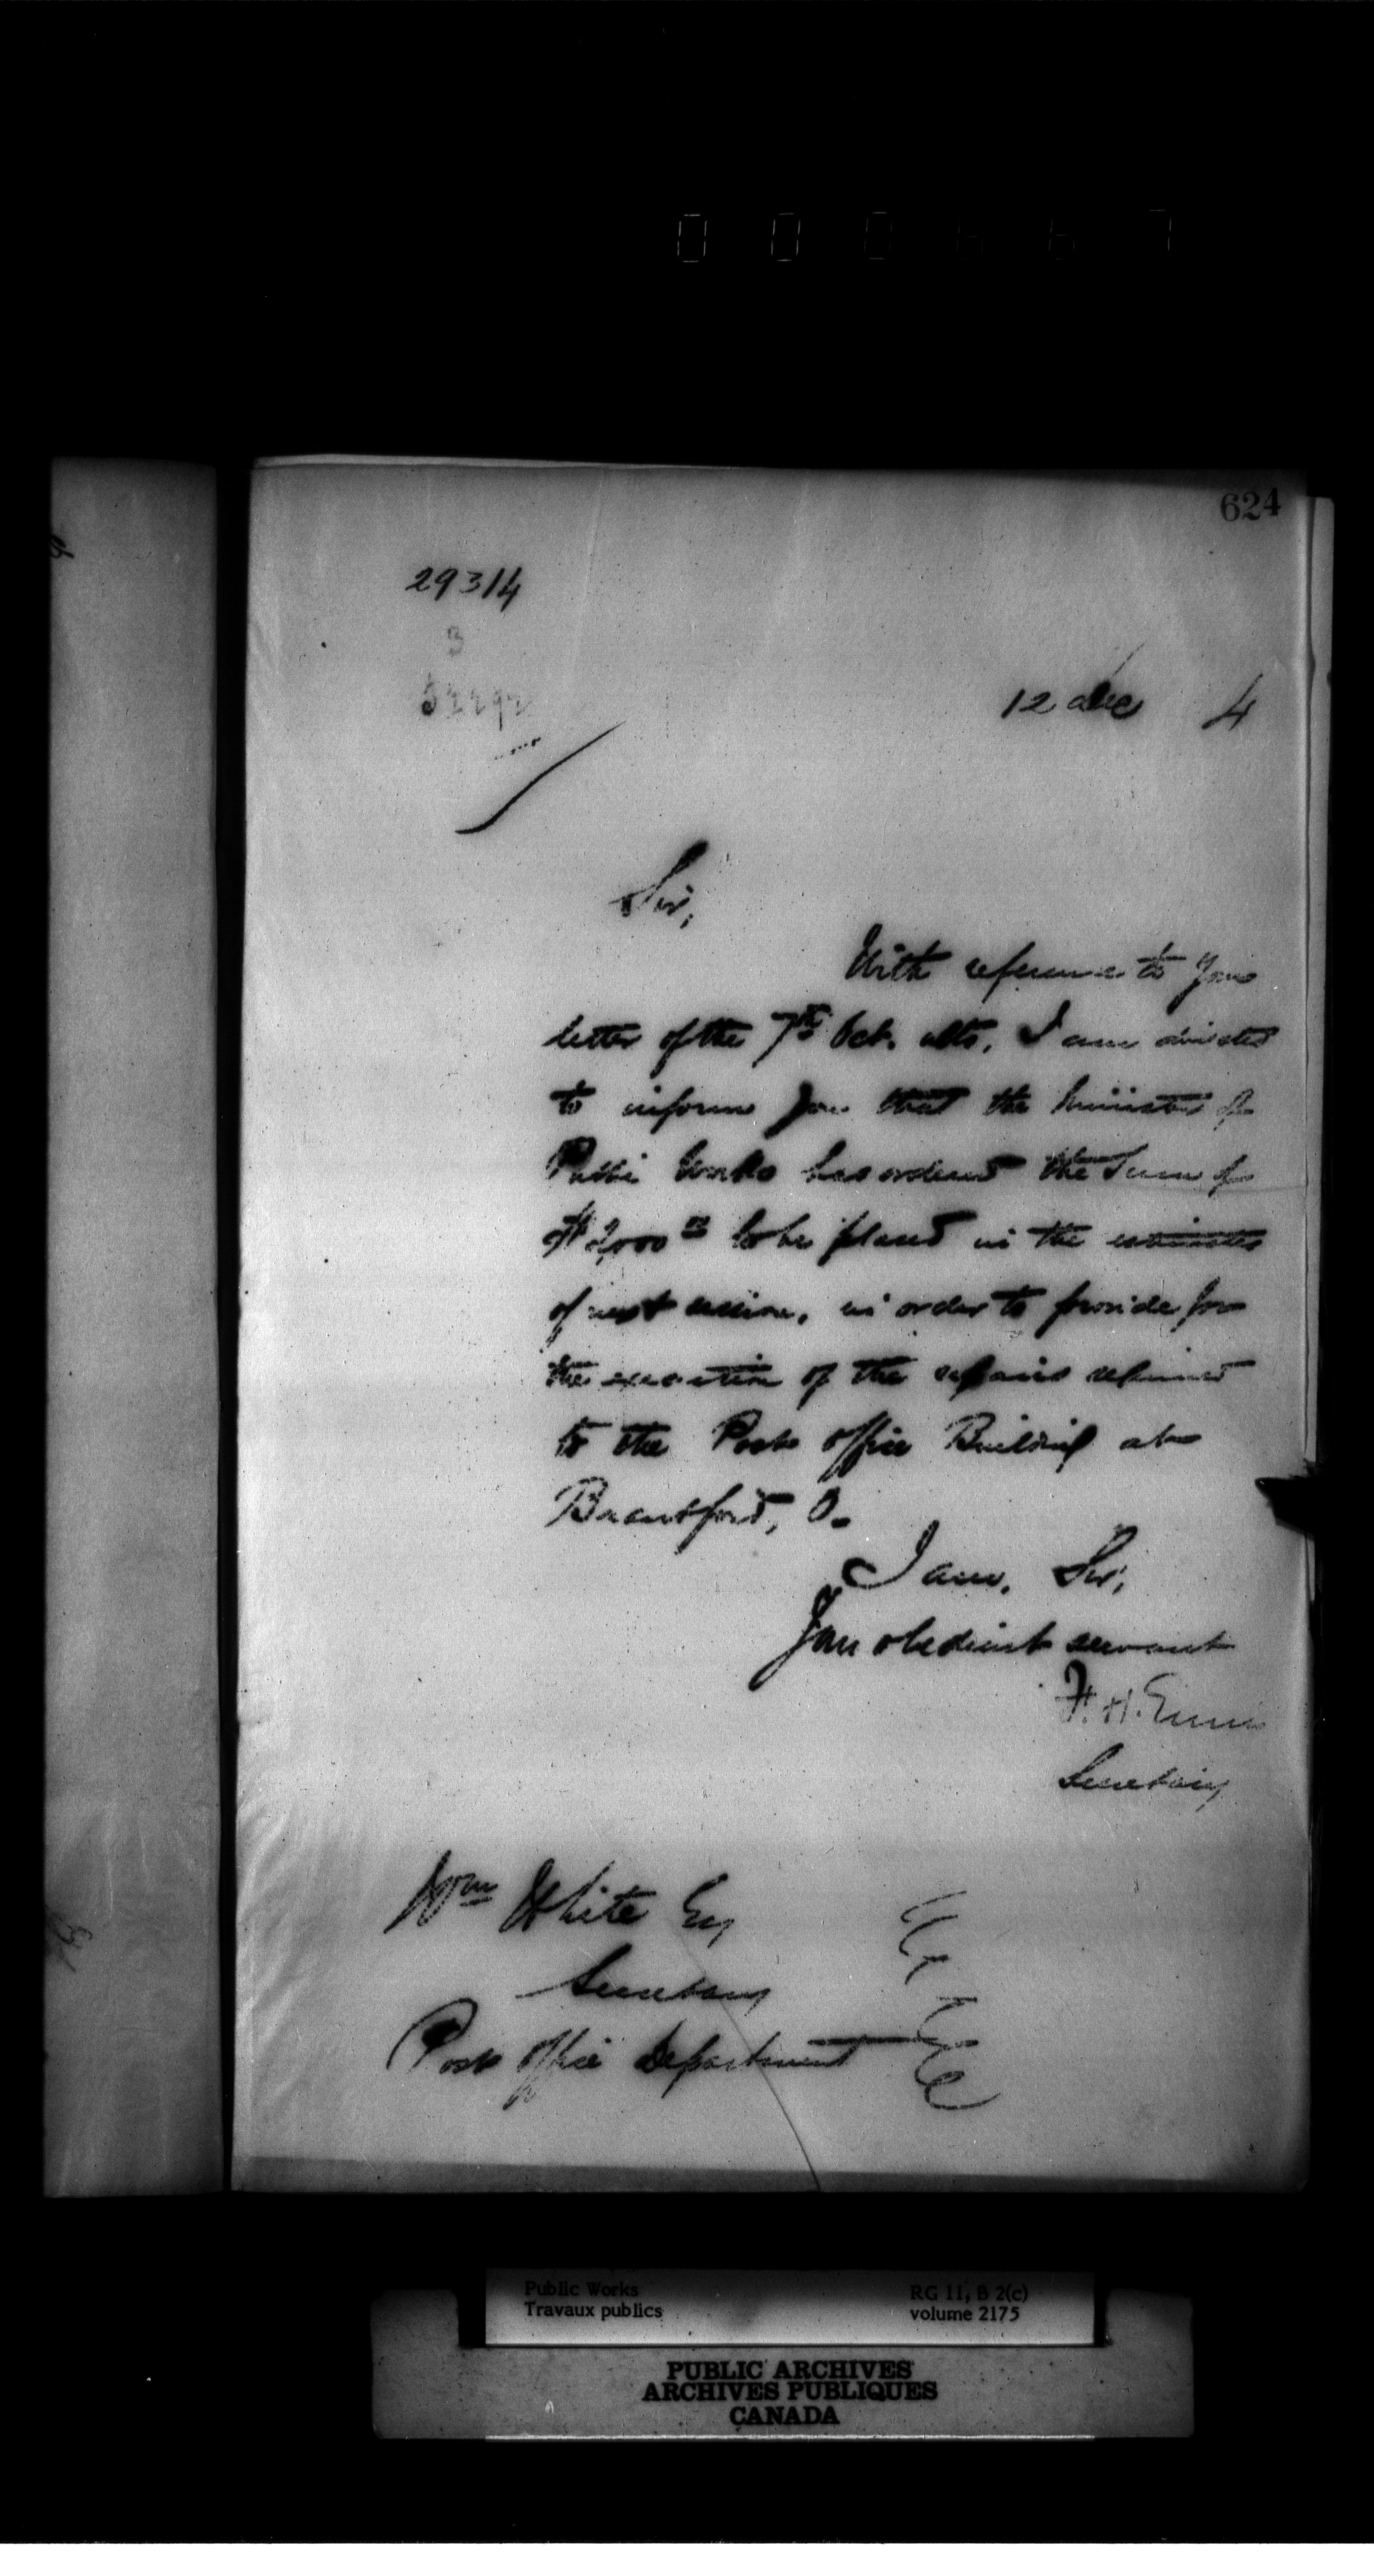 000667
624
29314
3
12 Dec 4
Sir,
With reference to your
letter of the 7th Oct. ulto, I am directed
to inform you that the Minister of
Public Works has ordered the sum of
$2,000 to be placed in the estimates
of next session, in order to provide for
the execution of the repairs required
to the Post Office Building at
Brantford, O.
I am, Sir,
Your obedient servant
F. H. Ennis
Secretary
Wm White Esq
Secretary
Post Office Department
Public Works
Travaux publics
RG 11, B 2(c)
volume 2175
PUBLIC ARCHIVES
ARCHIVES PUBLIQUES
CANADA